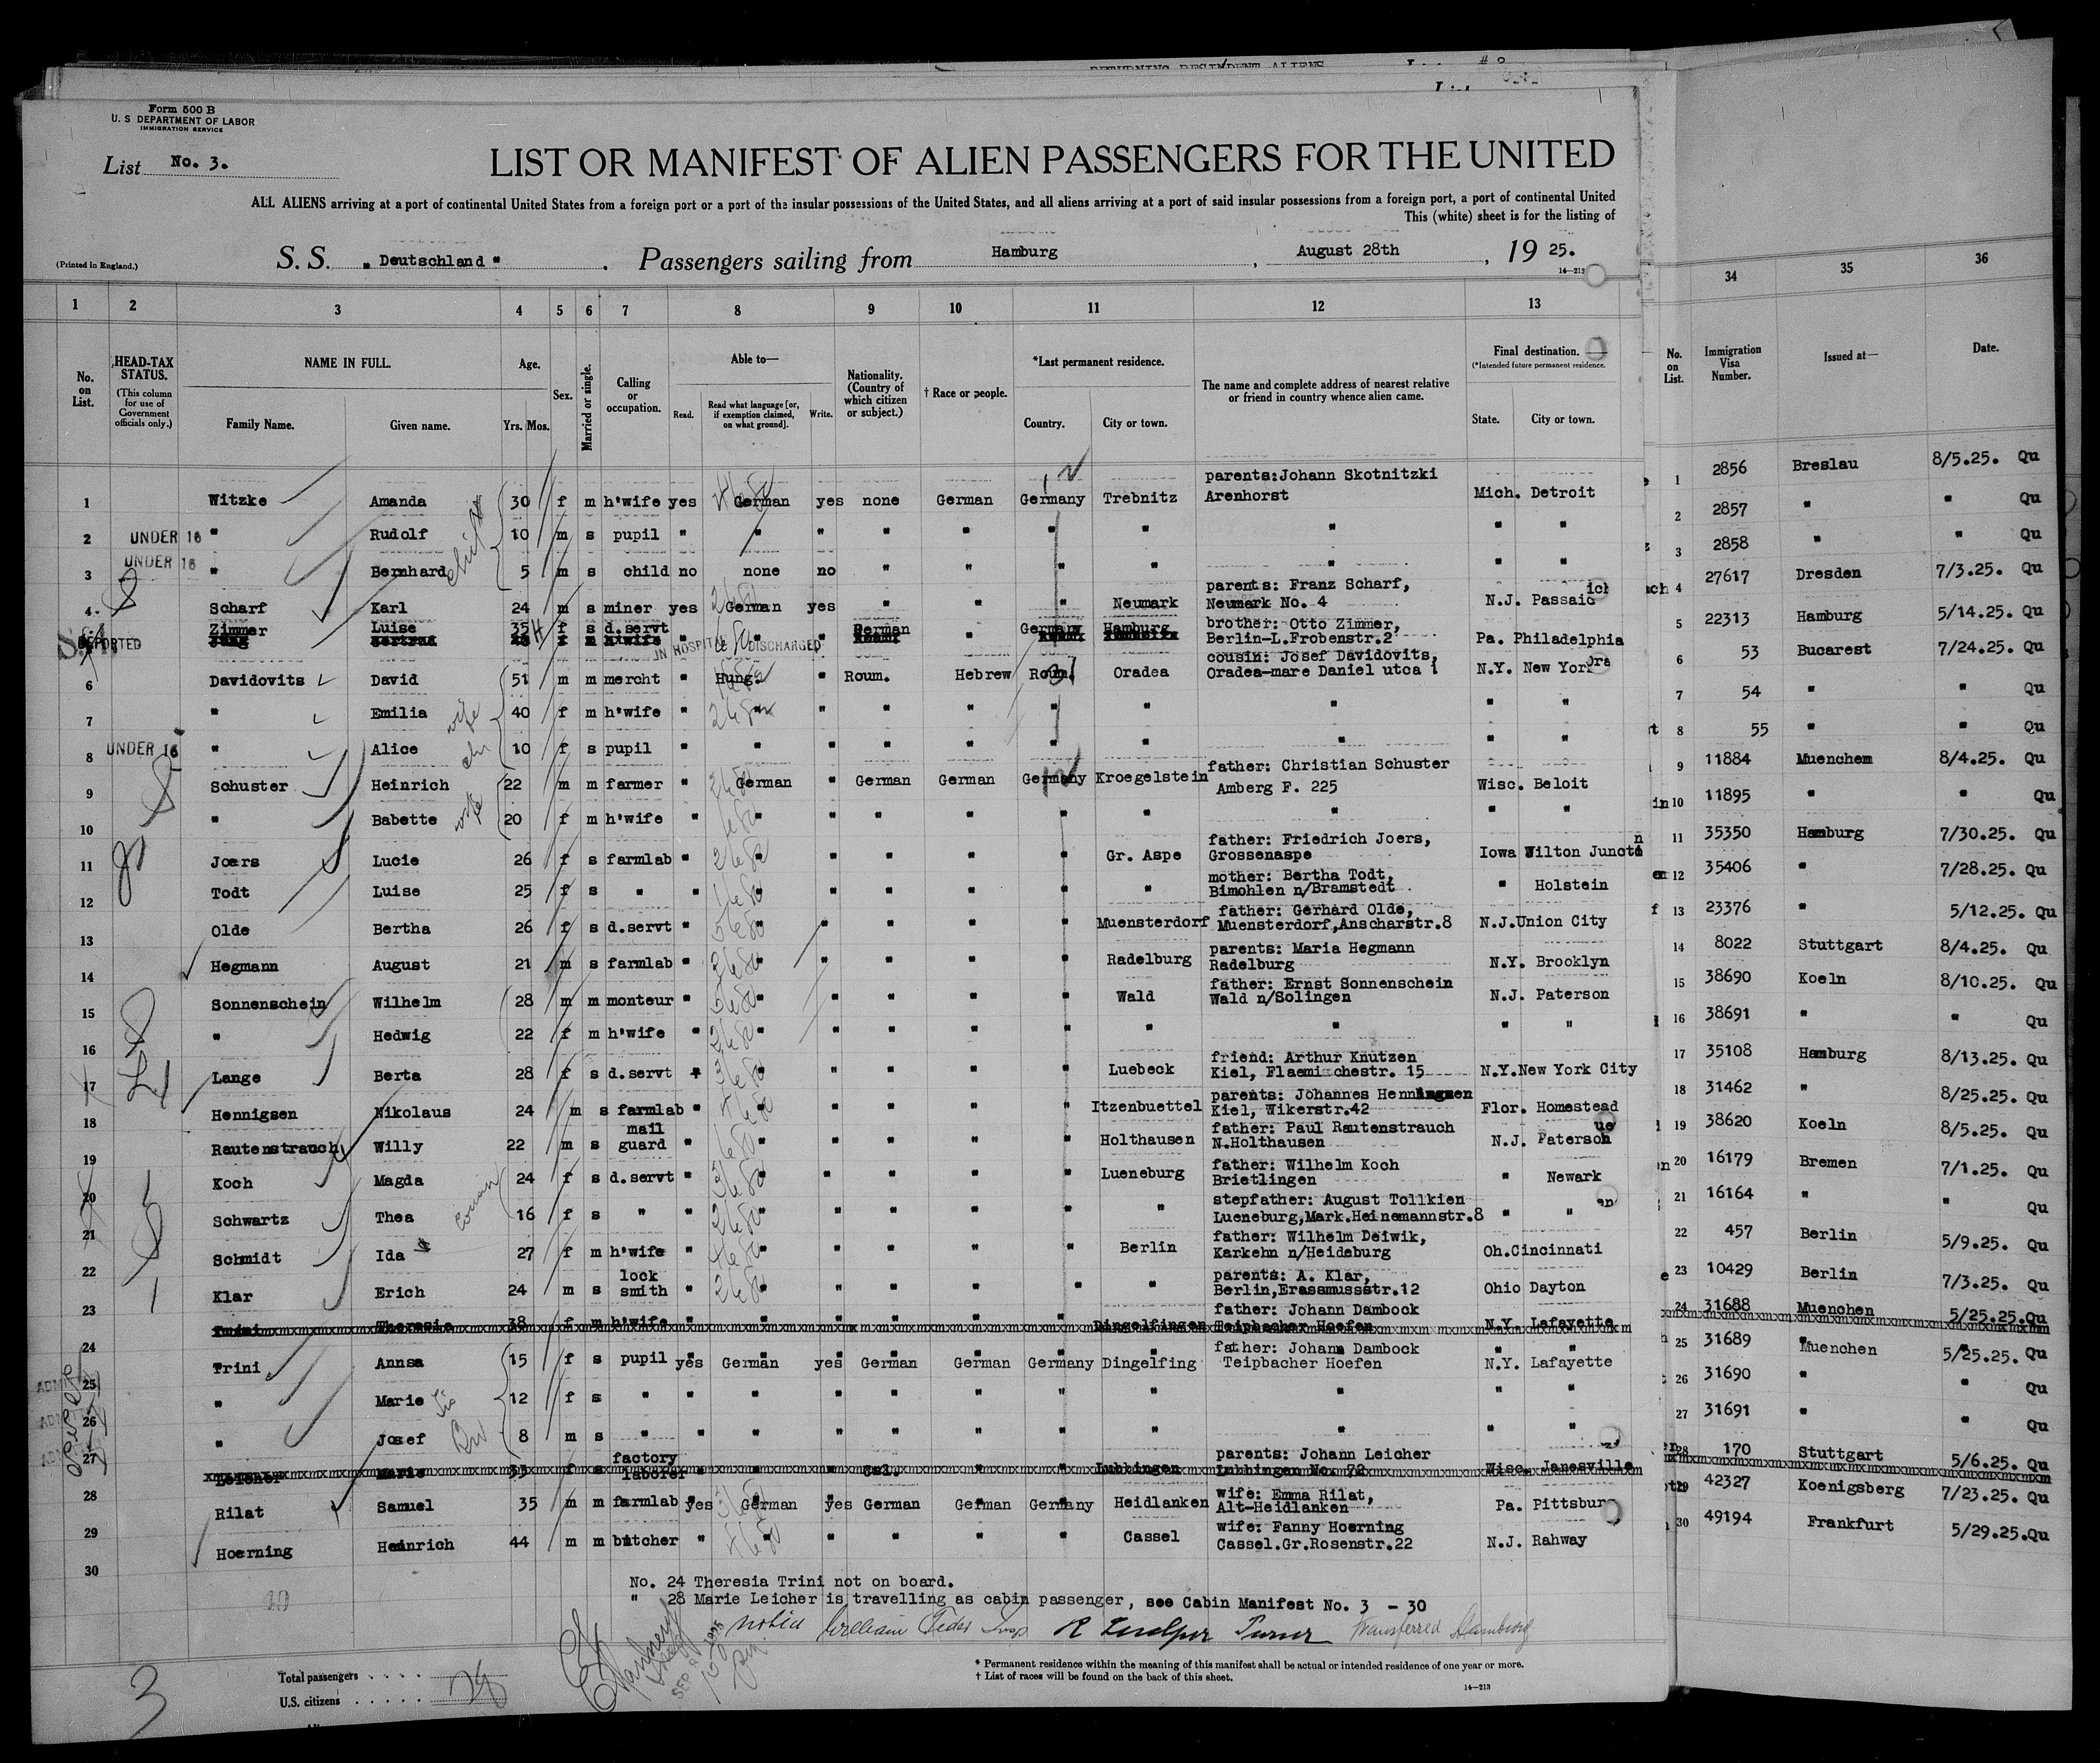 RETURNING RESIDENT ALIENS
Form 500 B
U. S DEPARTMENT OF LABOR
IMMIGRATION SERVICE
List No. 3.
LIST OR MANIFEST OF ALIEN PASSENGERS FOR THE UNITED
ALL ALIENS arriving at a port of continental United States from a foreign port or a port of the insular possessions of the United States, and all aliens arriving at a port of said insular possessions from a foreign port, a port of continental United
This (white) sheet is for the listing of
(Printed in England.)
S. S. „ Deutschland " . Passengers sailing from Hamburg , August 28th , 19 25.
14—213
1 2 3 4 5 6 7 8 9 10 11 12 13 34 35 36
No. on List.
HEAD-TAX STATUS.
(This column for use of Government officials only.)
NAME IN FULL.
Family Name. Given name.
Age.
Yrs. Mos.
Sex.
Married or single.
Calling or occupation.
Able to—
Read. Read what language [or, if exemption claimed, on what ground]. Write.
Nationality. (Country of which citizen or subject.)
† Race or people.
*Last permanent residence.
Country. City or town.
The name and complete address of nearest relative or friend in country whence alien came.
Final destination.
(*Intended future permanent residence.
State. City or town.
No. on List.
Immigration Visa Number.
Issued at—
Date.
parents:Johann Skotnitzki
1 Witzke Amanda 30 f m h'wife yes German yes none German Germany Trebnitz Arenhorst Mich. Detroit 1 2856 Breslau 8/5.25. Qu
2 UNDER 16 " Rudolf 10 m s pupil " " " " " " " " " " 2 2857 " " Qu
3 UNDER 16 " Bernhard 5 m s child no none no " " " " " " " 3 2858 " " Qu
parents: Franz Scharf,
4 Scharf Karl 24 m s miner yes German yes " " " Neumark Neumark No. 4 N.J. Passaic 4 27617 Dresden 7/3.25. Qu
Zimmer Luise 35 f s d.servt German Germany Hamburg brother: Otto Zimmer,
DEPORTED Berlin-L.Frobenstr.2 Pa. Philadelphia 5 22313 Hamburg 5/14.25. Qu
IN HOSPITAL DISCHARGED
cousin: Josef Davidovits,
6 Davidovits David 51 m m mercht " Hung. " Roum. Hebrew Roum. Oradea Oradea-mare Daniel utca 1 N.Y. New York 6 53 Bucarest 7/24.25. Qu
7 " Emilia wife 40 f m h'wife " " " " " " " " " " 7 54 " " Qu
8 UNDER 16 " Alice 10 f s pupil " " " " " " " " " " 8 55 " " Qu
father: Christian Schuster
9 Schuster Heinrich 22 m m farmer " German " German German Germany Kroegelstein Amberg F. 225 Wisc. Beloit 9 11884 Muenchen 8/4.25. Qu
10 " Babette wife 20 f m h'wife " " " " " " " " " " 10 11895 " " Qu
father: Friedrich Joers,
11 Joers Lucie 26 f s farmlab " " " " " " Gr. Aspe Grossenaspe Iowa Wilton Junct 11 35350 Hamburg 7/30.25. Qu
mother: Bertha Todt,
12 Todt Luise 25 f s " " " " " " " " Bimohlen n/Bramstedt " Holstein 12 35406 " 7/28.25. Qu
father: Gerhard Olde,
13 Olde Bertha 26 f s d.servt " " " " " " Muensterdorf Muensterdorf,Anscharstr.8 N.J.Union City 13 23376 " 5/12.25. Qu
parents: Maria Hegmann
14 Hegmann August 21 m s farmlab " " " " " " Radelburg Radelburg N.Y. Brooklyn 14 8022 Stuttgart 8/4.25. Qu
father: Ernst Sonnenschein
15 Sonnenschein Wilhelm 28 m m monteur " " " " " " Wald Wald n/Solingen N.J. Paterson 15 38690 Koeln 8/10.25. Qu
16 " Hedwig 22 f m h'wife " " " " " " " " " " 16 38691 " " Qu
friend: Arthur Knutzen
17 Lange Berta 28 f s d.servt " " " " " " Luebeck Kiel, Flaemi chestr. 15 N.Y.New York City 17 35108 Hamburg 8/13.25. Qu
parents: Johannes Henningsen
18 Hennigsen Nikolaus 24 m s farmlab " " " " " " Itzenbuettel Kiel, Wikerstr.42 Flor. Homestead 18 31462 " 8/25.25. Qu
mail father: Paul Rautenstrauch
19 Rautenstrauch Willy 22 m s guard " " " " " " Holthausen N.Holthausen N.J. Paterson 19 38620 Koeln 8/5.25. Qu
father: Wilhelm Koch
20 Koch Magda 24 f s d.servt " " " " " " Lueneburg Brietlingen " Newark 20 16179 Bremen 7/1.25. Qu
stepfather: August Tollkien
21 Schwartz Thea cousin 16 f s " " " " " " " " Lueneburg,Mark.Heinemannstr.8 " " 21 16164 " " Qu
father: Wilhelm Deiwik,
22 Schmidt Ida 27 f m h'wife " " " " " " Berlin Karkehn n/Heideburg Oh.Cincinnati 22 457 Berlin 5/9.25. Qu
lock parents: A. Klar,
23 Klar Erich 24 m s smith " " " " " " " Berlin,Erassmussstr.12 Ohio Dayton 23 10429 Berlin 7/3.25. Qu
father: Johann Dambock
24 Trini Theresia 38 f m h'wife " " " " " " Dingelfingen Teipbacher Hoefen N.Y. Lafayette 24 31688 Muenchen 5/25.25.Qu
father: Johann Dambock
25 Trini Annsa 15 f s pupil yes German yes German German Germany Dingelfing Teipbacher Hoefen N.Y. Lafayette 25 31689 Muenchen 5/25.25. Qu
26 " Marie 12 f s " " " " " " " " " " " 26 31690 " " Qu
27 " Josef 8 m s " " " " " " " " " " " 27 31691 " " Qu
factory parents: Johann Leicher
28 Leicher Marie 33 f s laborer " " " Csl. " " Lubbingen Lubbingen No. 72 Wisc. Janesville 28 170 Stuttgart 5/6.25. Qu
wife: Emma Rilat,
29 Rilat Samuel 35 m m farmlab yes German yes German German Germany Heidlanken Alt-Heidlanken Pa. Pittsburg 29 42327 Koenigsberg 7/23.25. Qu
wife: Fanny Hoerning
30 Hoerning Heinrich 44 m m butcher " " " " " " Cassel Cassel.Gr.Rosenstr.22 N.J. Rahway 30 49194 Frankfurt 5/29.25.Qu
No. 24 Theresia Trini not on board.
" 28 Marie Leicher is travelling as cabin passenger, see Cabin Manifest No. 3 - 30
William Insp Turner Transferred Hamburg
* Permanent residence within the meaning of this manifest shall be actual or intended residence of one year or more.
† List of races will be found on the back of this sheet.
14—213
Total passengers . . . .
U.S. citizens . . . . .
3